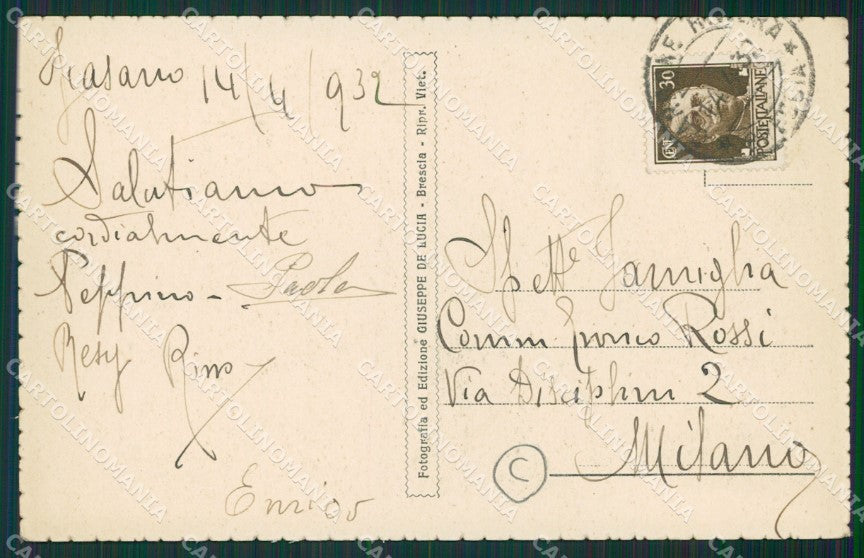 14/4/932
Salutiamo
cordialmente
Peppino - Paola
Resy Rino
Enrico
Fotografia ed Edizione GIUSEPPE DE LUCIA - Brescia - Ripr. Viet.
30
POSTE ITALIANE
Spett. Famiglia
Comm. Enrico Rossi
Via Disciplini 2
Milano
C
CARTOLINOMANIA